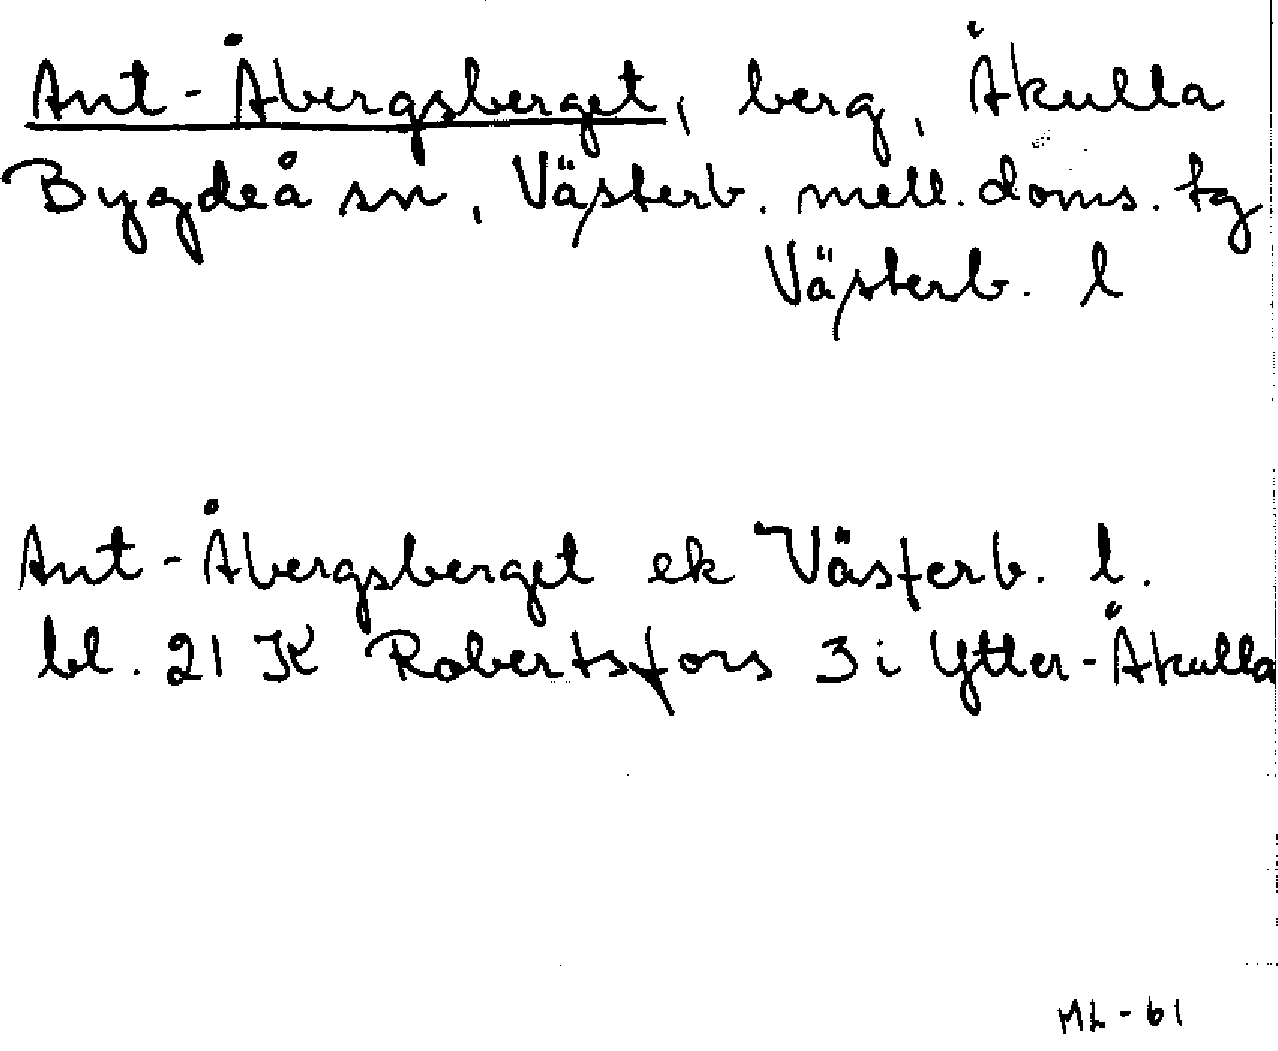 Ant-Åbergsberget, berg, Åkulla
Bygdeå sn, Västerb. mell. doms. tg
Västerb. l
Ant-Åbergsberget ek Västerb. l.
bl. 21 K Robertsfors 3 i Ytter-Åkulla
ML-61